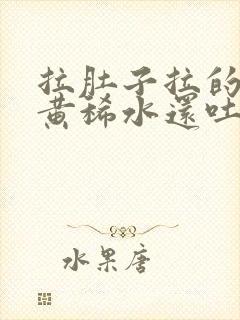 拉肚子拉的
黄稀水還吐
水果唐